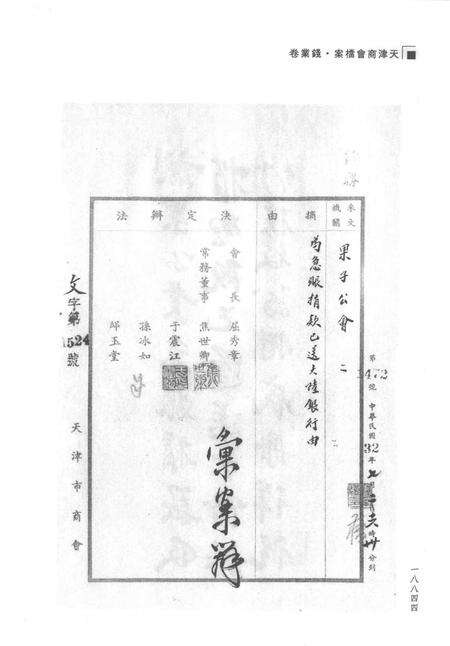 天津商會檔案·錢業卷
來文機關
果子公會 二
摘由
為急賑捐款已送大陸銀行由
決定辦法
會長 屈秀章
常務董事 焦世卿
于震江
孫冰如
邸玉堂
彙案辦
第3472號 中華民國32年七月 時 分到
文字第1524號
天津市商會
一八八四四